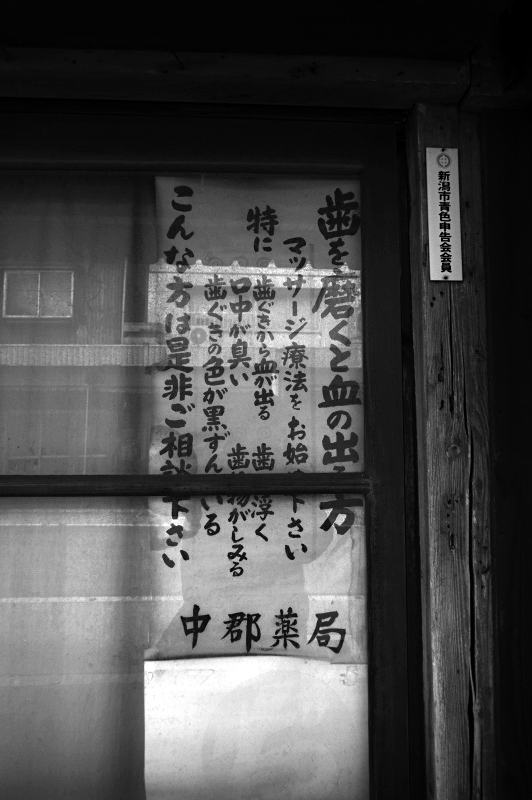 新潟市青色申告会会員
歯を磨くと血の出る方
マッサージ療法をお始め下さい
特に 歯ぐきから血が出る 歯が浮く
口中が臭い 歯に物がしみる
歯ぐきの色が黒ずんでいる
こんな方は是非ご相談下さい
中郡薬局